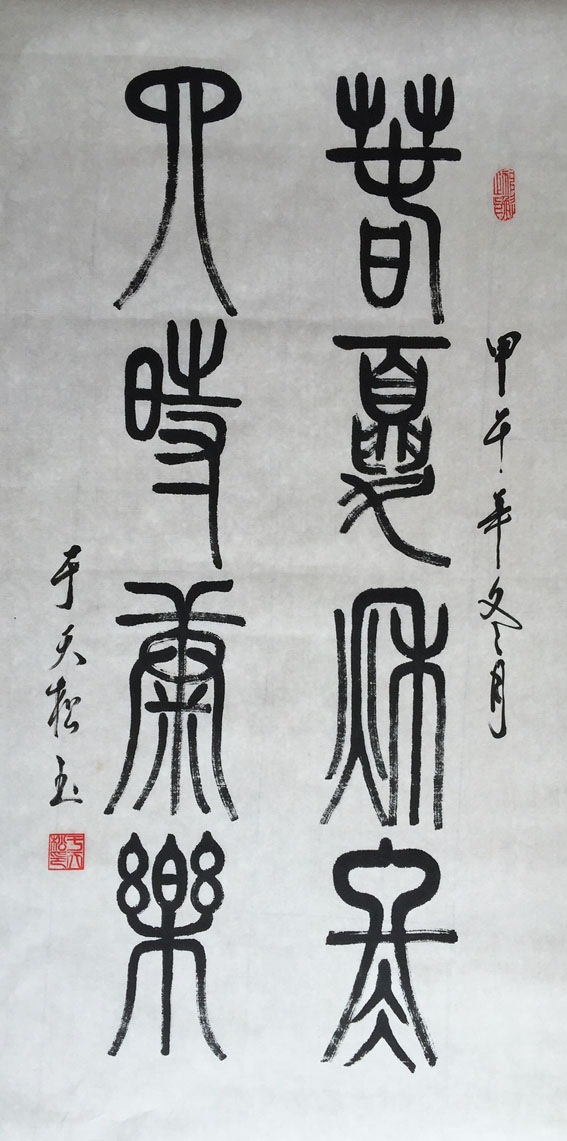 甲午年冬月
春夏秋冬
四時康樂
于天松書
于天松印